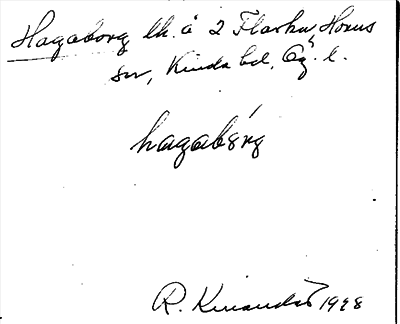 Hagaborg lh. å 2 Flarka, Horns
sn, Kinda hd, Ög. l.
hagabórg
R. Kinander 1928